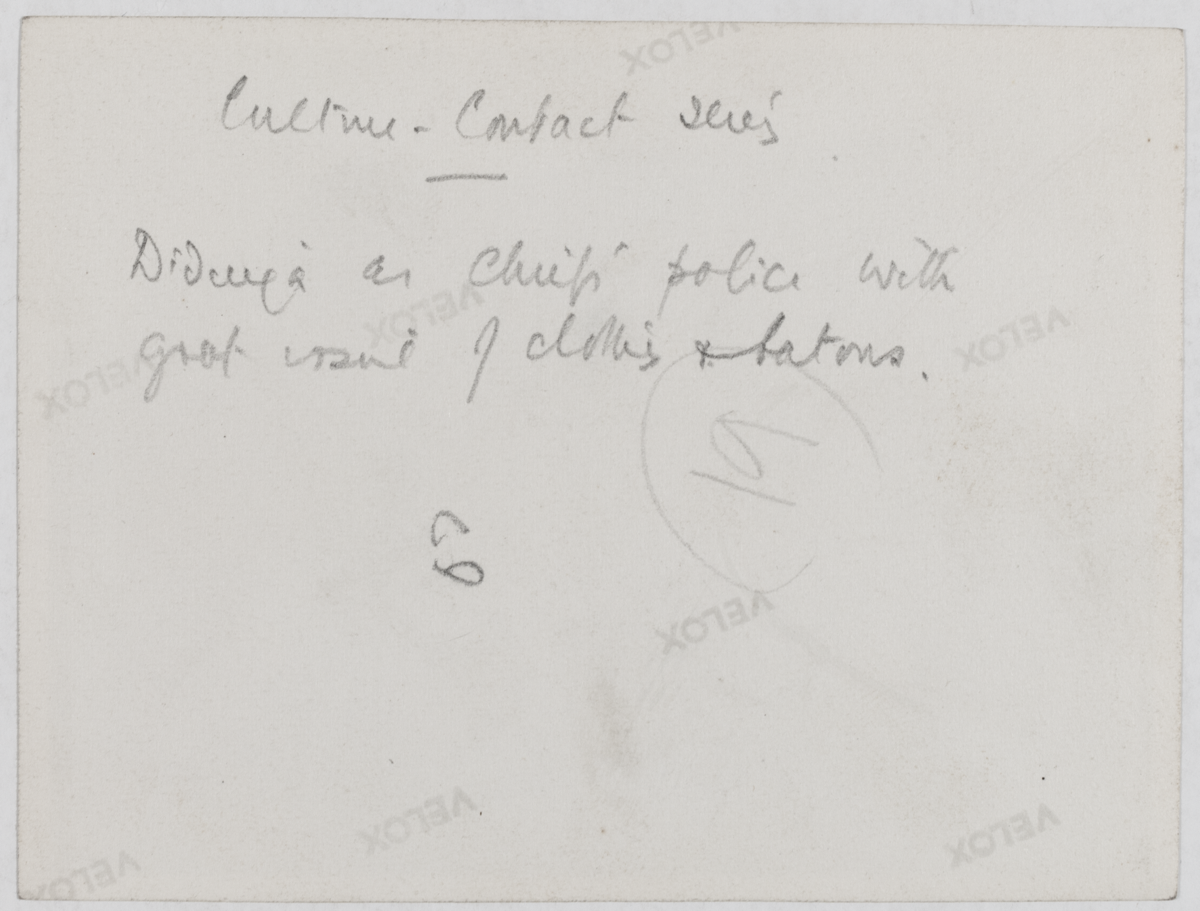 Culture-Contact series
Didinga as chiefs' police with
govt issue of clothes & batons.
19
69
VELOX
VELOX
VELOX
VELOX
VELOX
VELOX
VELOX
VELOX